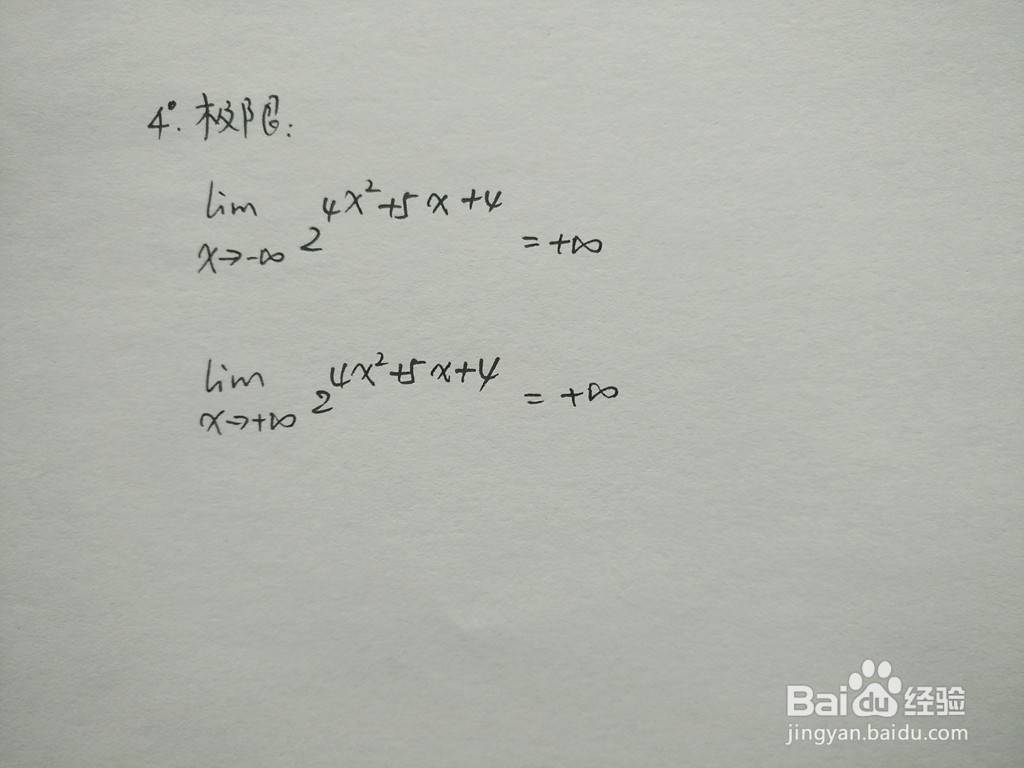 4°. 极限:
lim x→-∞ 2^{4x²+5x+4} = +∞
lim x→+∞ 2^{4x²+5x+4} = +∞
Bai du 经验
jingyan.baidu.com